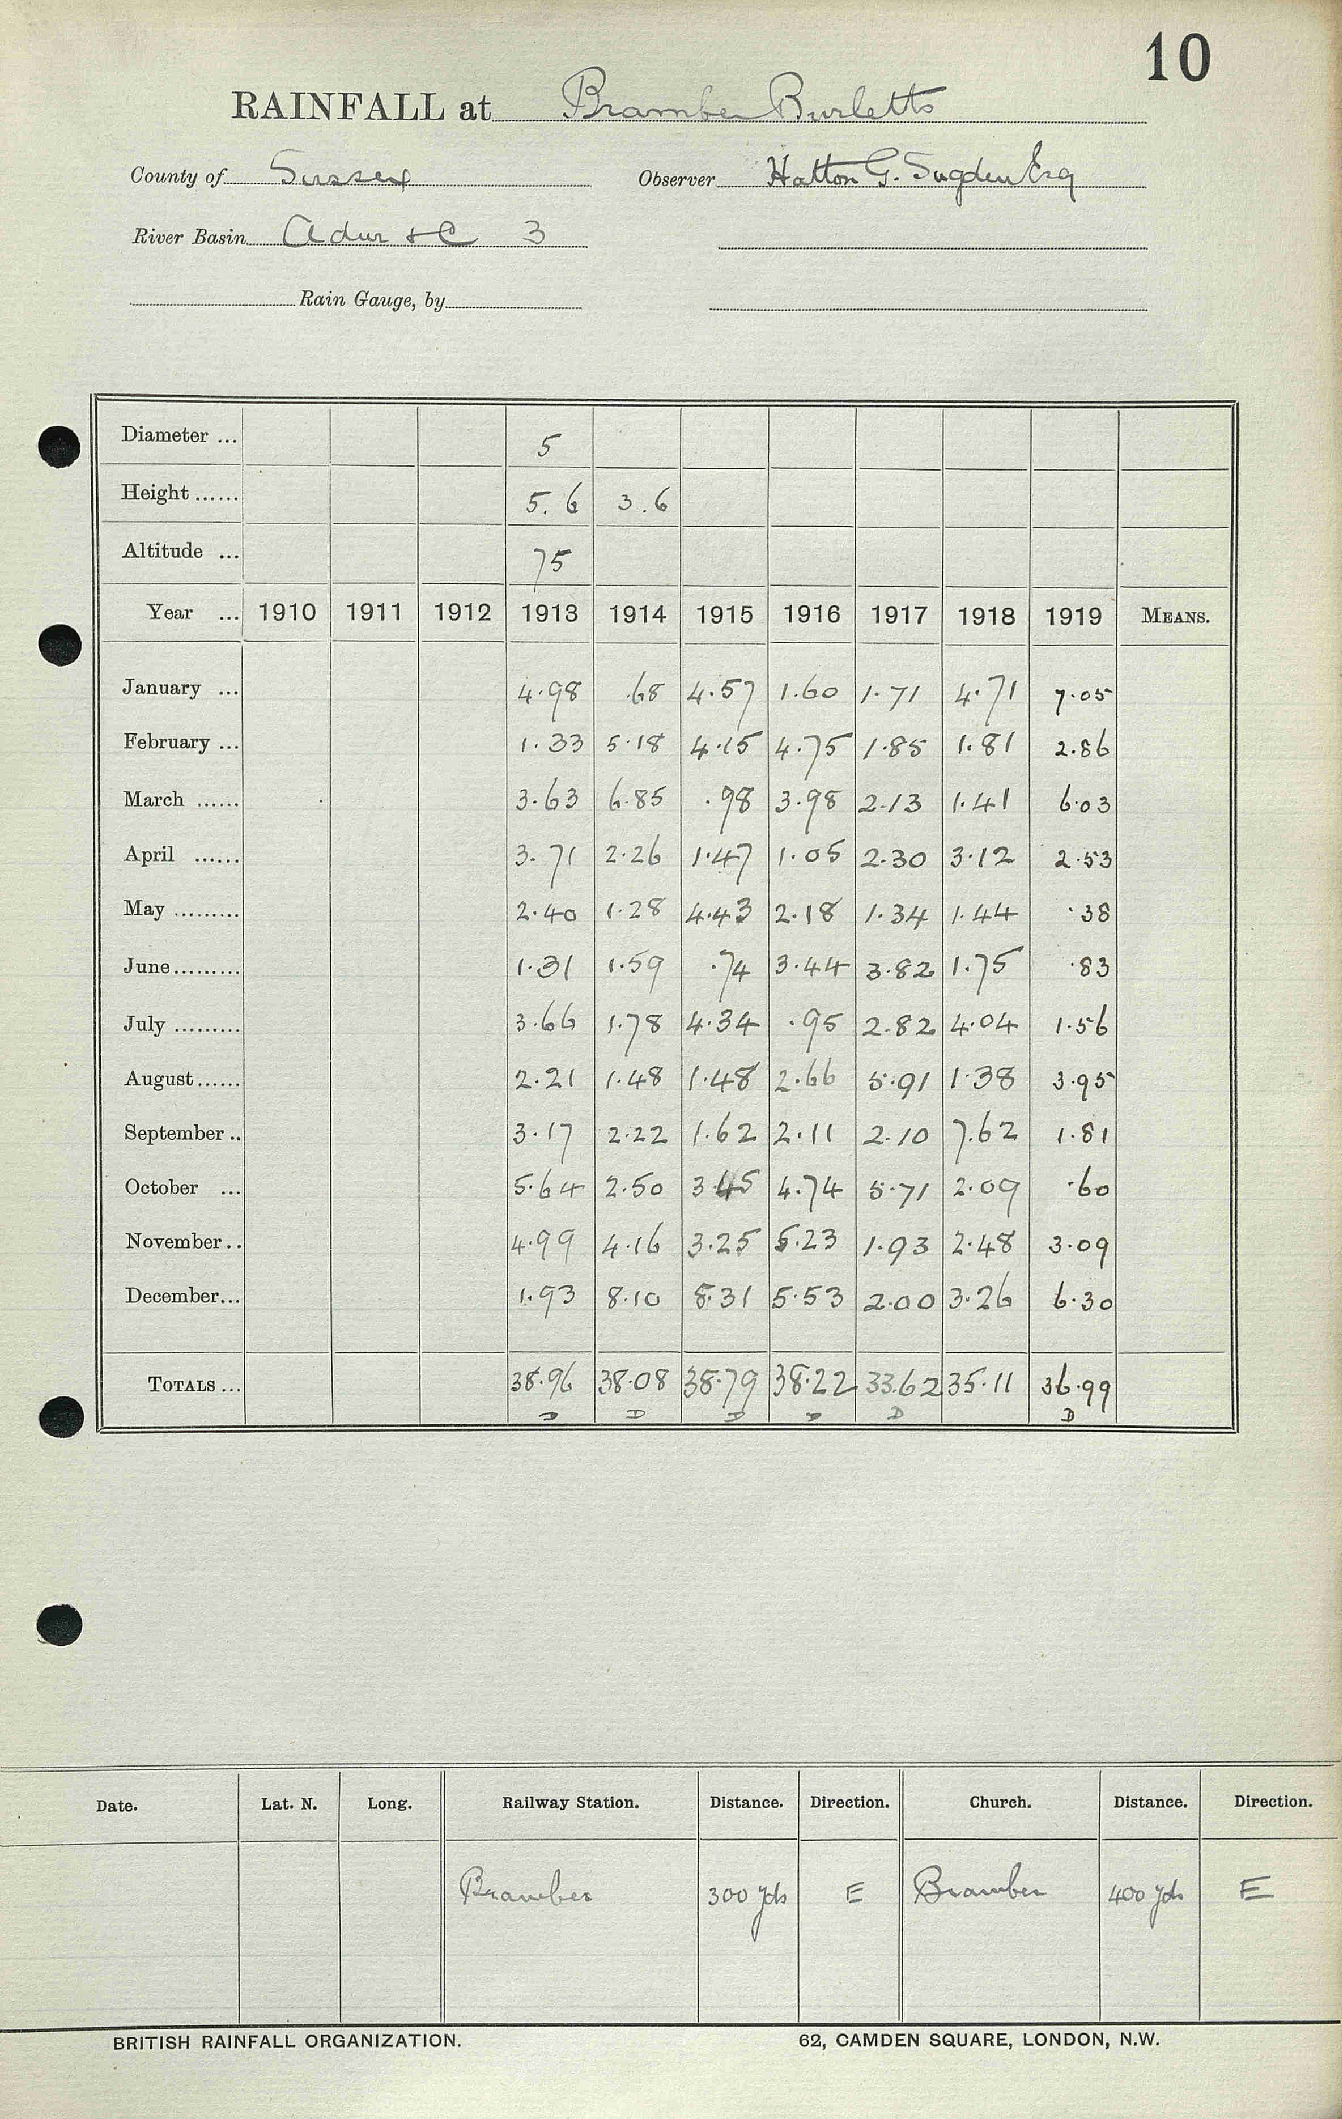 10
RAINFALL at Bramber Burletts
County of Sussex Observer Hatton G. Sugden Esq
River Basin Adur &c 3
Rain Gauge, by
Diameter ... 5
Height ...... 5.6 3.6
Altitude ... 75
Year ... 1910 1911 1912 1913 1914 1915 1916 1917 1918 1919 MEANS.
January ... 4.98 .68 4.57 1.60 1.71 4.71 7.05
February ... 1.33 5.18 4.15 4.75 1.85 1.81 2.86
March ...... 3.63 6.85 .98 3.98 2.13 1.41 6.03
April ...... 3.71 2.26 1.47 1.05 2.30 3.12 2.53
May ......... 2.40 1.28 4.43 2.18 1.34 1.44 .38
June ......... 1.31 1.59 .74 3.44 3.82 1.75 .83
July ......... 3.66 1.78 4.34 .95 2.82 4.04 1.56
August ...... 2.21 1.48 1.48 2.66 5.91 1.38 3.95
September .. 3.17 2.22 1.62 2.11 2.10 7.62 1.81
October ... 5.64 2.50 3.45 4.74 5.71 2.09 .60
November .. 4.99 4.16 3.25 5.23 1.93 2.48 3.09
December ... 1.93 8.10 8.31 5.53 2.00 3.26 6.30
TOTALS ... 38.96 38.08 38.79 38.22 33.62 35.11 36.99
D D D D D D
Date. Lat. N. Long. Railway Station. Distance. Direction. Church. Distance. Direction.
Bramber 300 yds E Bramber 400 yds E
BRITISH RAINFALL ORGANIZATION. 62, CAMDEN SQUARE, LONDON, N.W.